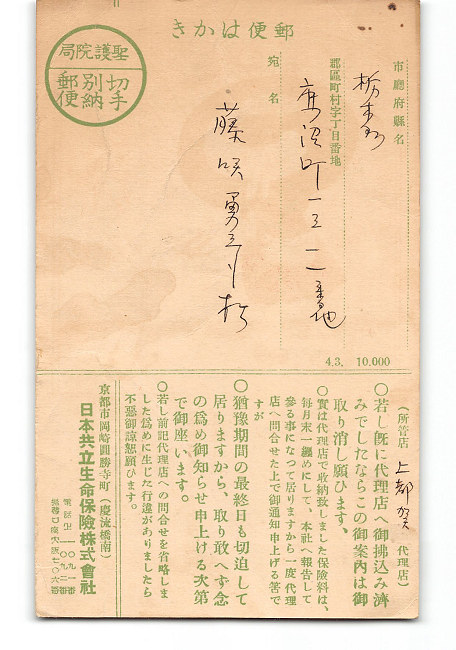 郵便はかき
聖護院局
切手
別納
郵便
市廳府縣名
栃木縣
郡區町村字丁目番地
鹿沼町一三一一番地
宛名
4.3. 10,000
(所管店 上都賀 代理店)
○若し旣に代理店へ御拂込み濟
みでしたならこの御案内は御
取り消し願ひます、
○實は代理店で收納致しました保險料は、
毎月末一纒めにして、本社へ報告して
參る事になつて居りますから一度代理
店へ問合せた上で御通知申上げる筈で
すが
○猶豫期間の最終日も切迫して
居りますから、取り敢へず念
の爲め御知らせ申上げる次第
で御座います。
○若し前記代理店への問合せを省略しま
した爲めに生じた行違がありましたら
不惡御諒恕願ひます。
京都市岡崎圓勝寺町(慶流橋南)
日本共立生命保險株式會社